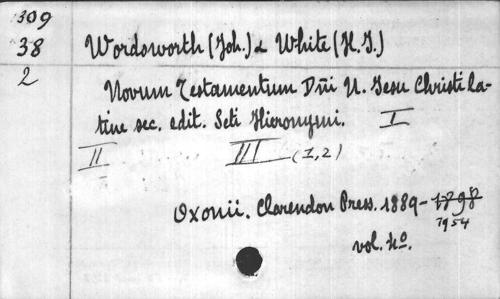 309
38
2
Wordsworth (Joh.) & White (H. J.)
Novum Testamentum Dñi N. Jesu Christi la-
tine sec. edit. Scti Hieronymi. I
II III (1,2)
Oxonii. Clarendon Press. 1889-1898
1954
vol. 4º.